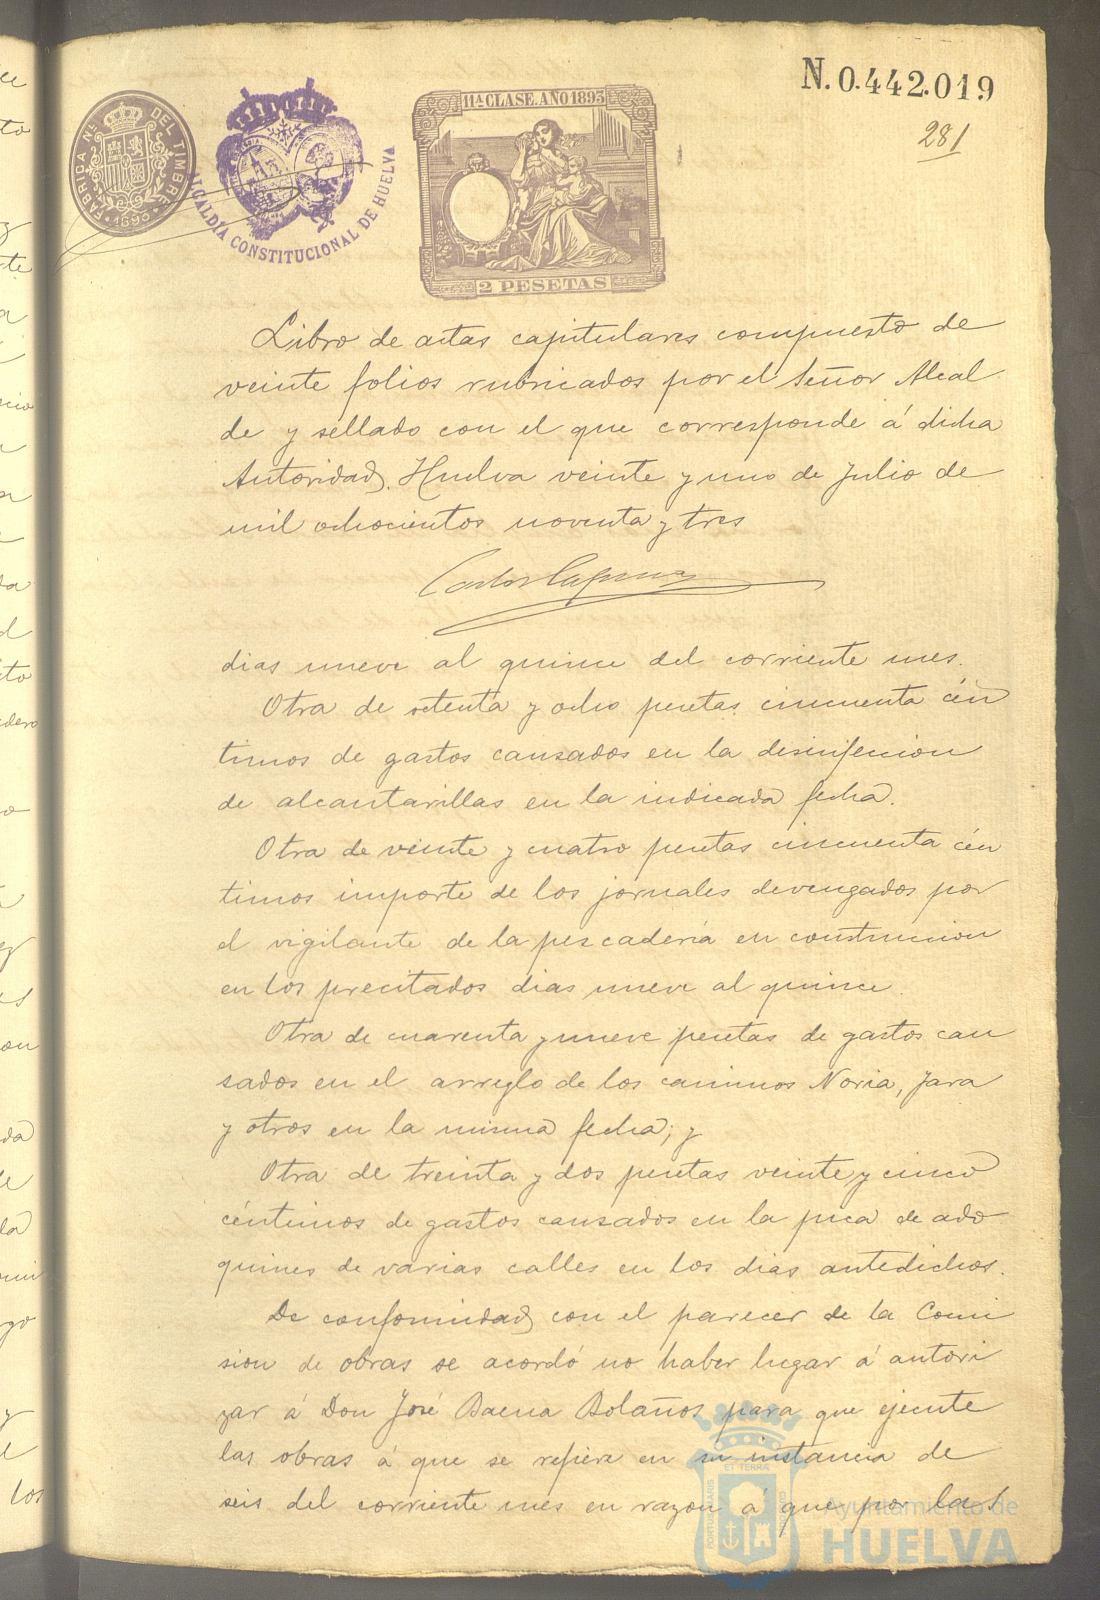 N.0.442.019
281
FABRICA Nal. DEL TIMBRE
·1893·
ALCALDÍA CONSTITUCIONAL DE HUELVA
11ª CLASE. AÑO 1893
2 PESETAS
Libro de actas capitulares compuesto de
veinte folios rubricados por el Señor Alcal
de y sellado con el que corresponde á dicha
Autoridad. Huelva veinte y uno de Julio de
mil ochocientos noventa y tres
dias nueve al quince del corriente mes.
Otra de setenta y ocho pesetas cincuenta cén
timos de gastos causados en la desinfeccion
de alcantarillas en la indicada fecha.
Otra de veinte y cuatro pesetas cincuenta cén
timos importe de los jornales devengados por
el vigilante de la pescadería en construccion
en los precitados dias nueve al quince.
Otra de cuarenta y nueve pesetas de gastos cau
sados en el arreglo de los caminos Noria, Jara
y otros en la misma fecha; y
Otra de treinta y dos pesetas veinte y cinco
céntimos de gastos causados en la pica de ado
quines de varias calles en los dias antedichos.
De conformidad con el parecer de la Comi
sion de obras se acordó no haber lugar á autori
zar á Don José Baena Bolaños para que ejecute
las obras á que se refiere en su instancia de
seis del corriente mes en razon á que por las
Ayuntamiento de
HUELVA